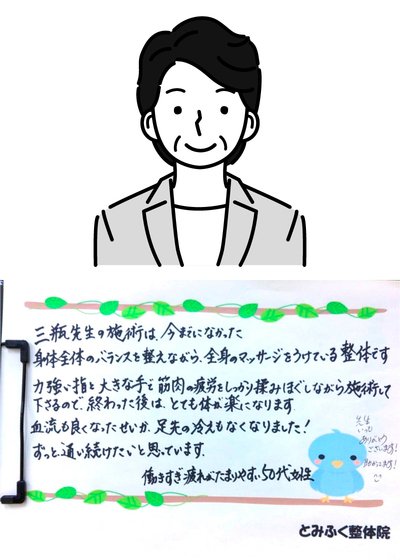 三瓶先生の施術は、今までになかった
身体全体のバランスを整えながら、全身のマッサージをうけている整体です
力強い指と大きな手で筋肉の疲労をしっかり揉みほぐしながら施術して
下さるので、終わった後は、とても体が楽になります
血流も良くなったせいか、足先の冷えもなくなりました!
ずっと通い続けたいと思っています。
働きすぎ疲れがたまりやすい50代女性
先生
いつも
ありがとう
ございます!
とみふく整体院